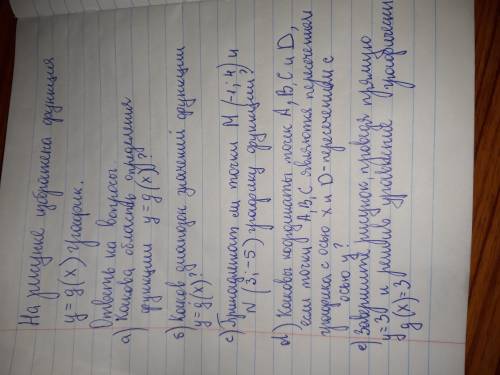 На рисунке изображена функция
y = g(x) график.
Ответить на вопросы.
a) Какова область определения
функции y = g(x)?
б) Каков диапазон значений функции
y = g(x)?
c) Принадлежат ли точки M (-1; 4) и
N (3; -5) графику функции?
d) Каковы координаты точек A, B, C и D,
если точки A, B, C являются пересечением
графика с осью x и D - пересечением с
осью y?
e) Завершите рисунок, проведя прямую
y = 3 и решив уравнение графически
g(x) = 3